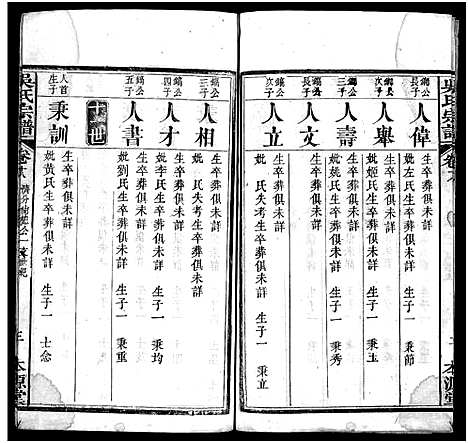 人偉
生卒葬俱未詳
妣左氏生卒葬俱未詳 生子一 秉節
鐫公次子
人舉
生卒葬俱未詳
妣姬氏生卒葬俱未詳 生子一 秉玉
人壽
生卒葬俱未詳
妣姚氏生卒葬俱未詳 生子一 秉秀
長子
人文
生卒葬俱未詳
次子
人立
生卒葬俱未詳
妣 氏失考生卒葬俱未詳 生子一 秉立
三子
人相
生卒葬俱未詳
妣 氏失考生卒葬俱未詳
四子
人才
生卒葬俱未詳
妣李氏生卒葬俱未詳 生子一 秉均
五子
人書
生卒葬俱未詳
妣劉氏生卒葬俱未詳 生子一 秉重
世
人首生子
秉訓
生卒葬俱未詳
妣黃氏生卒葬俱未詳 生子一 士念
吳氏宗譜
本源堂